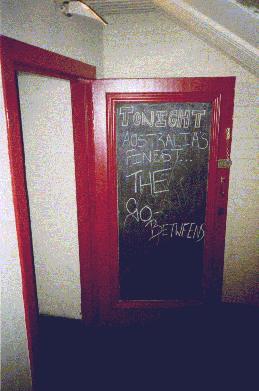 TONIGHT
AUSTRALIA'S
FINEST...
THE
GO-
BETWEENS